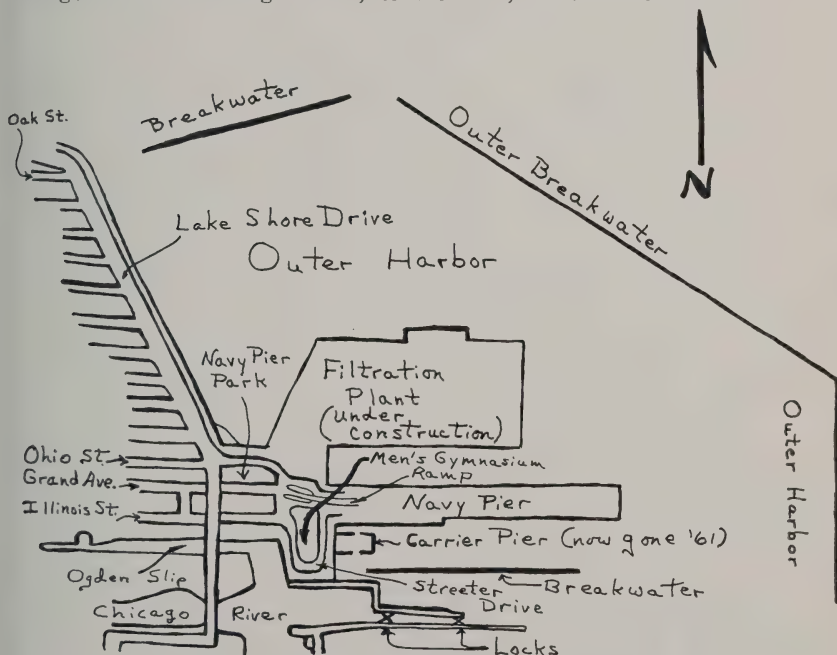 Oak St.
Breakwater
Outer Breakwater
N
Lake Shore Drive
Outer Harbor
Navy Pier
Park
Filtration
Plant
(under
construction)
Outer Harbor
Ohio St.
Grand Ave.
Illinois St.
Men's Gymnasium
Ramp
Navy Pier
Carrier Pier (now gone '61)
Ogden Slip
Streeter
Drive
Breakwater
Chicago River
Locks